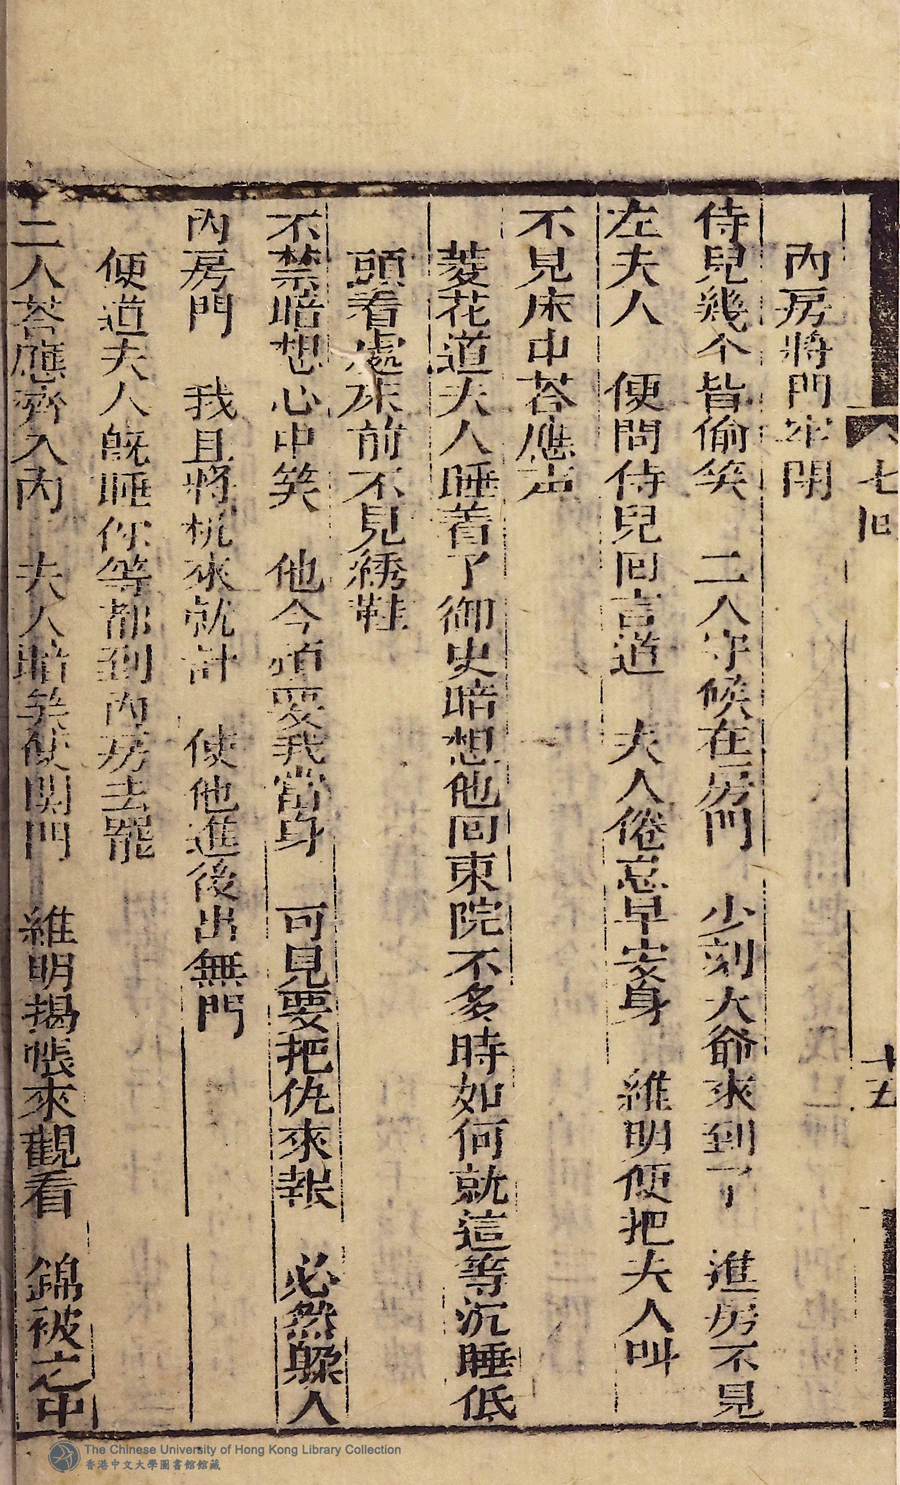 七回
十五
內房將門牢閉
侍兒幾个皆偷笑 二人守候在房門 少刻大爺來到了 進房不見
左夫人 便問侍兒回言道 夫人倦怠早安身 維明便把夫人叫
不見床中荅應声
菱花道夫人睡着了御史暗想他回東院不多時如何就這等沉睡低
頭看處床前不見綉鞋
不禁暗想心中笑 他今頑耍我當身 可見要把仇來報 必然躱人
內房門 我且將机來就計 使他進後出無門
便道夫人既睡你等都到內房去罷
二人荅應齊入內 夫人暗笑便関門 維明揭帳來觀看 錦被之中
The Chinese University of Hong Kong Library Collection
香港中文大學圖書館館藏